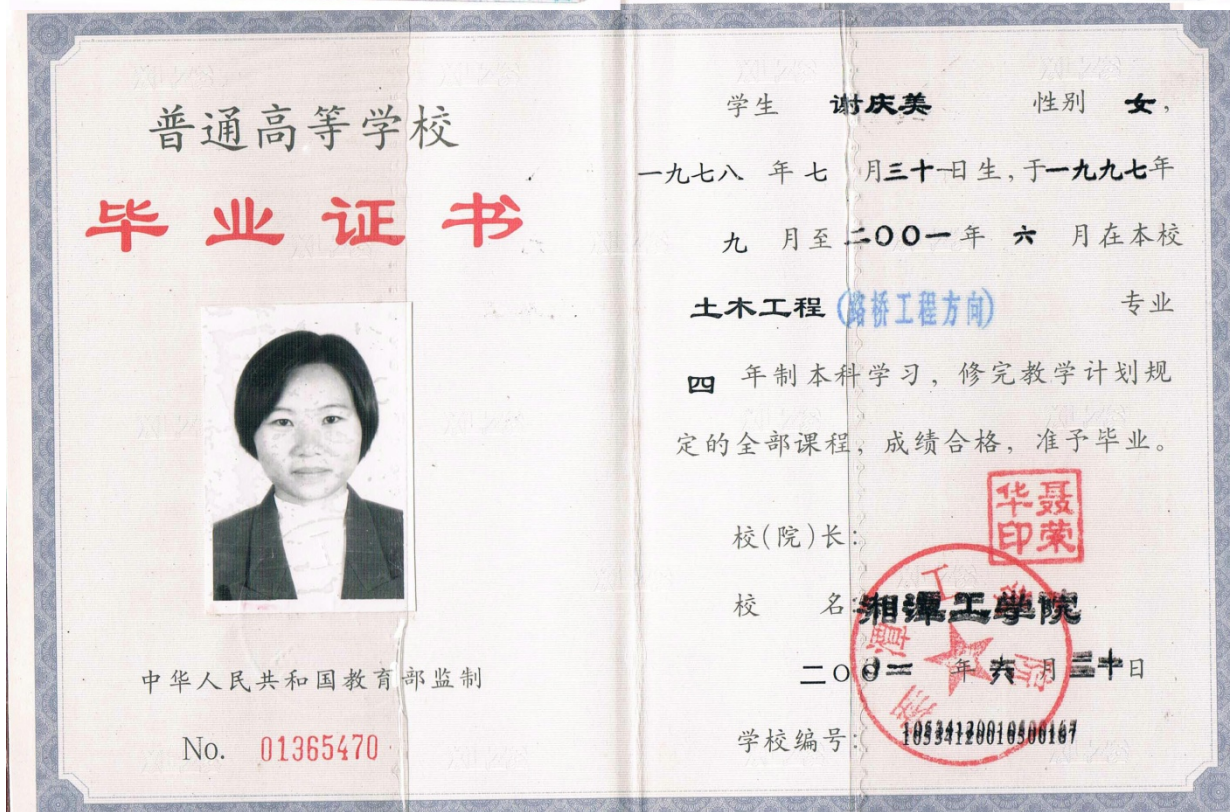 普通高等学校
毕业证书
中华人民共和国教育部监制
No. 01365470
学生 谢庆美 性别 女,
一九七八 年 七 月三十一日生,于一九九七年
九 月至二〇〇一年 六 月在本校
土木工程(路桥工程方向) 专业
四 年制本科学习,修完教学计划规
定的全部课程,成绩合格,准予毕业。
校(院)长:
聂荣华印
校 名:湘潭工学院
湘潭工学院
二〇〇一 年 六 月 三十日
学校编号: